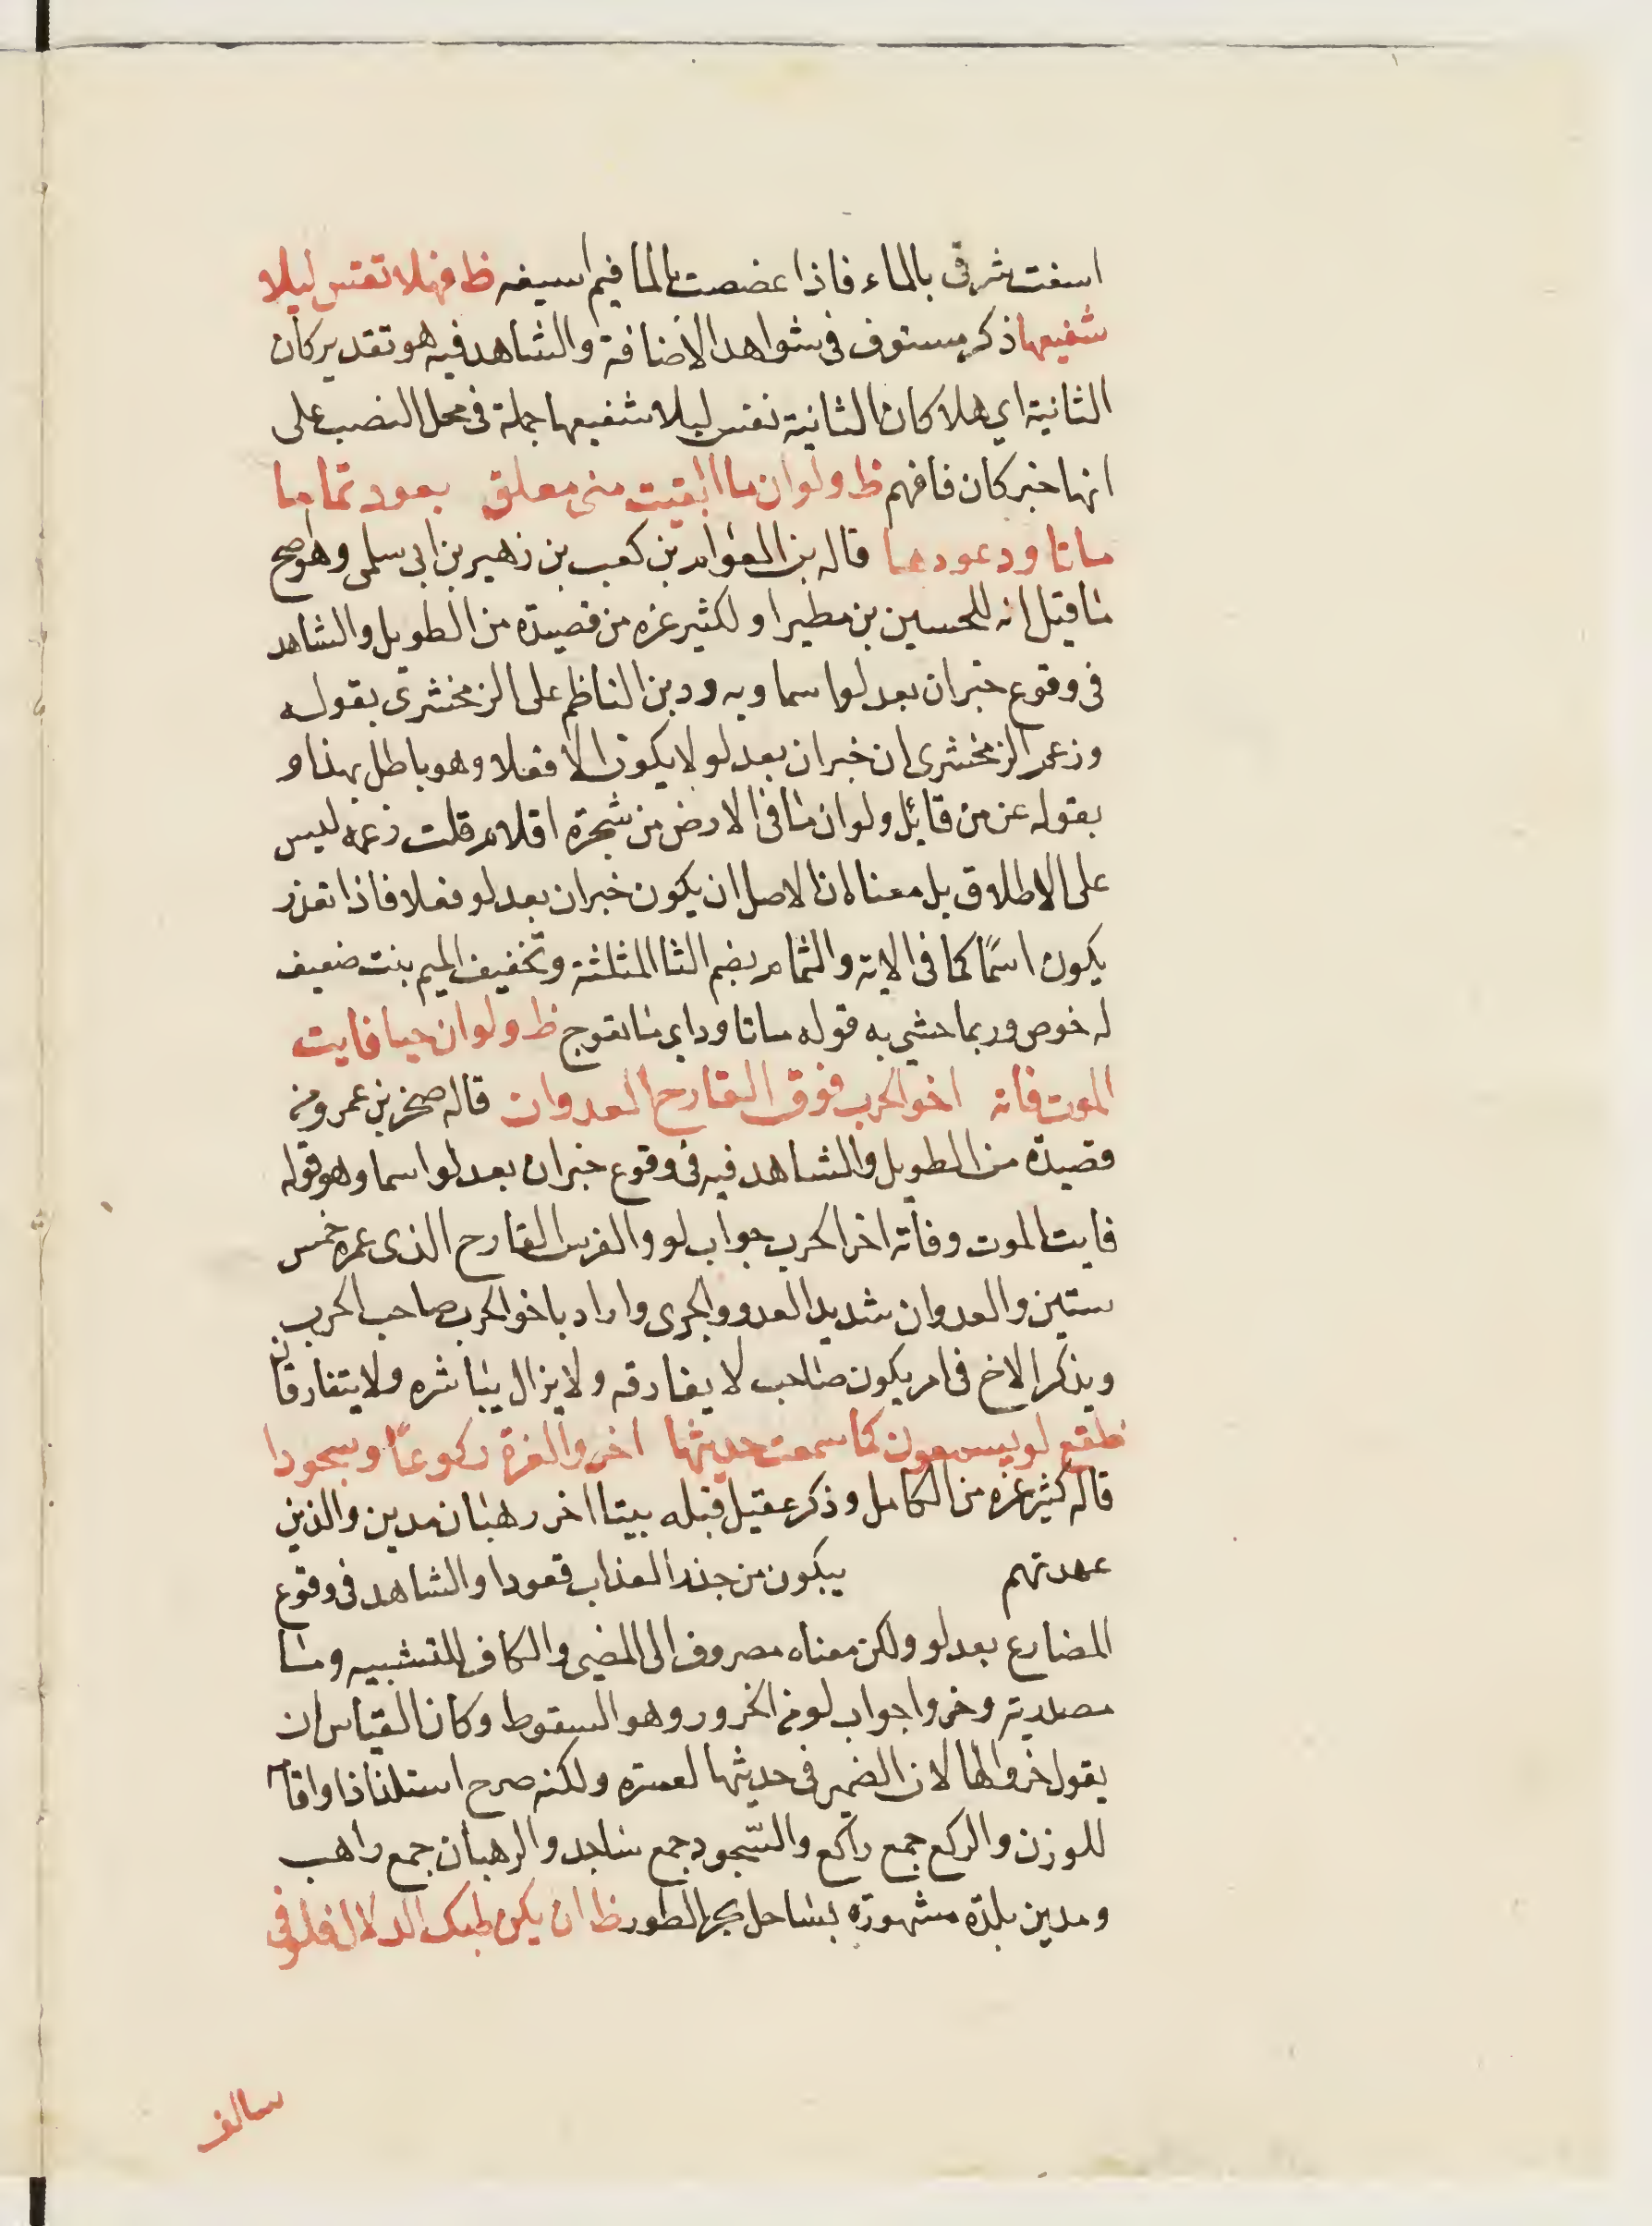 اسغت شرقى بالماء فاذا عضصت بالما فبم اسيغه ظ فهلا نفس ليلا
شفيعها ذكر مستوفى فى شواهد الاضافة والشاهد فيه هو تقدير كان
الثانية اي هلا كان الثانية نفس ليلا شفيعها جملة فى محل النصب على
انها خبر كان فافهم ظ ولو ان ما ابقيت منى معلق بعود ثماما
ماتاود عودها قاله بن العوام بن كعب بن زهير بن ابى سلمى وهو اصح
ما قيل انه للحسين بن مطير او لكثير عزه من قصيدة من الطويل والشاهد
فى وقوع خبر ان بعد لو اسما وبه رد بن الناظم على الزمخشرى بقوله
وزعم الزمخشرى ان خبر ان بعد لو لا يكون الا فعلا وهو باطل بهذا و
بقوله عز من قائل ولو ان ما فى الارض من شجرة اقلام قلت زعمه ليس
على الاطلاق بل معناه ان الاصل ان يكون خبر ان بعد لو فعلا فاذا تعذر
يكون اسمًا كما فى الاية والثمام بضم الثا المثلثة وتخفيف الميم بنت ضعيف
له خوص وربما حشى به قوله ماتاود اى ما تعوج ظ ولو ان حيا فايت
الموت فاته اخو الحرب فوق القارح العدوان قاله صخر بن عمرو من
قصيدة من الطويل والشاهد فيه فى وقوع خبر ان بعد لو اسما وهو قوله
فايت الموت وفاته اخر الحرب جواب لو والفرس القارح الذى عمره خمس
ستين والعدوان شديد العدو والجرى واراد باخو الحرب صاحب الحرب
ويذكر الاخ فى امر يكون صاحب لا يفارقه ولا يزال يباشره ولا يتفارقان
ظقع لو يسمعون كما سمعت حديثها اخر والعزة ركوعًا وسجودا
قاله كثير عزه من الكامل وذكر عقيل قبله بيتا اخر رهبان مدين والذين
عهدتهم يبكون من حذر العذاب قعودا والشاهد فى وقوع
المضارع بعد لو ولكن معناه مصروف الى المضى والكاف للتشبيه وما
مصدرية وخروا جواب لو من الخرور وهو السقوط وكان القياس ان
يقول خروا لها لان الضمير فى حديثها لعزه ولكنه صرح استلذاذا واقامة
للوزن والركع جمع راكع والسّجود جمع ساجد والرهبان جمع راهب
ومدين بلدة مشهورة بساحل بحر الطور ظ ان يكن طبك الدلال فلو فى
سالف